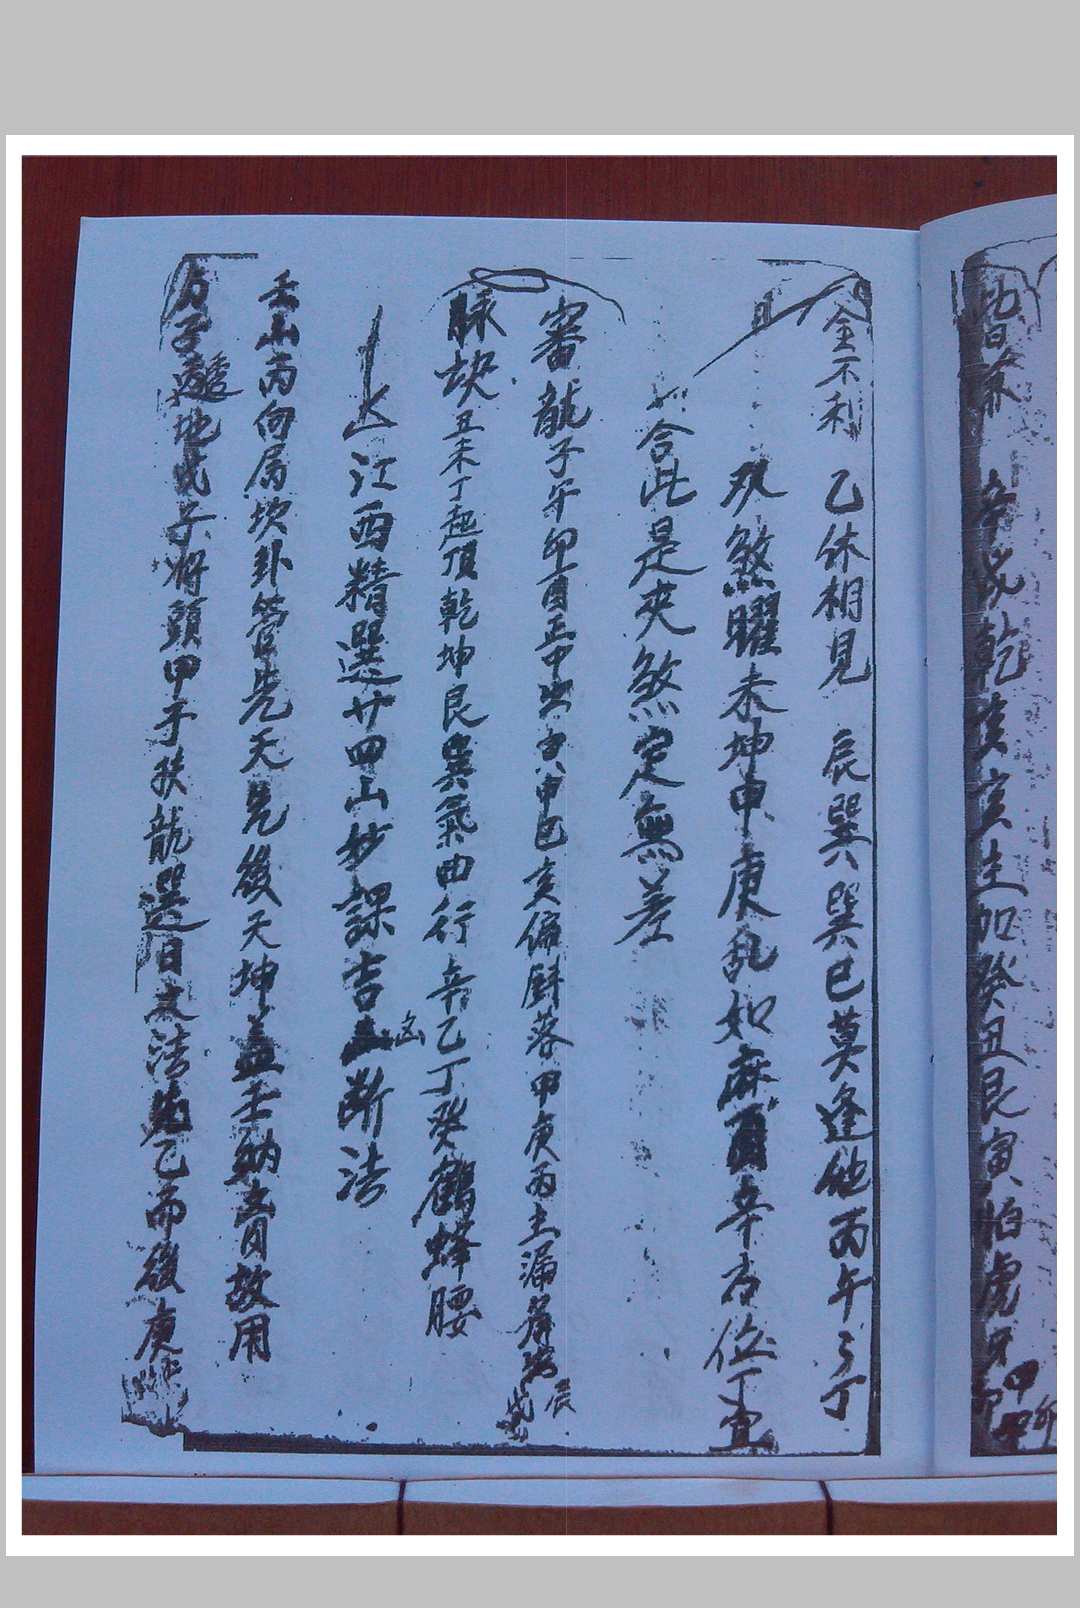 辛戌乾亥亥壬加癸丑艮寅怕虎甲卯
金不利 乙休相見 辰巽巽巳莫逢他丙午丁
双煞曜未坤申庚乱如麻酉辛右位丁宜
合此是夾煞定無差
審龍子午卯酉正中出寅申巳亥偏斜落甲庚丙壬漏辰戌
脉訣丑未丁起頂乾坤艮巽氣曲行辛乙丁癸鶴蜂腰
江西精選廿四山妙課吉凶断法
壬山丙向属坎卦管先天兑後天坤盖壬納音故用
方子地戊子将頭甲子扶龍選日之法先乙而後庚